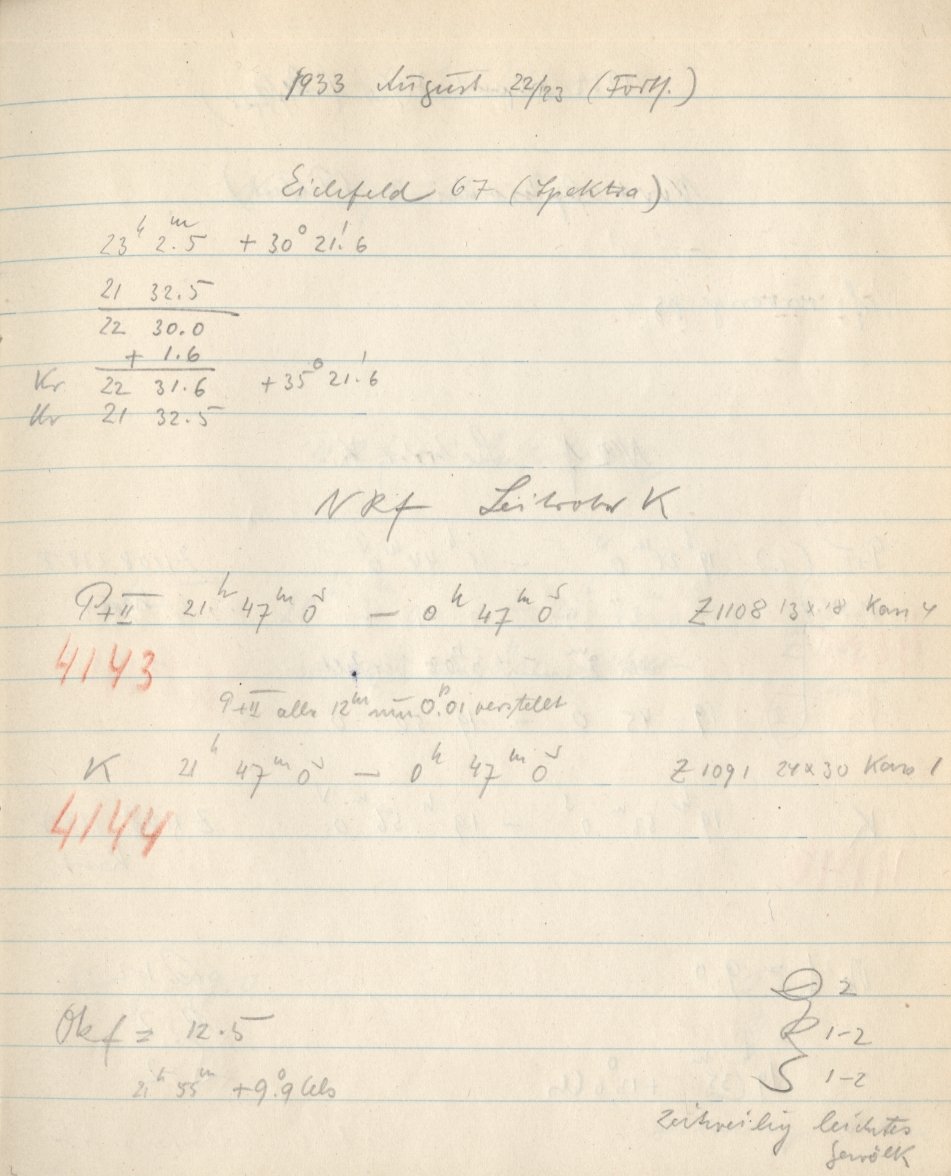 1933 August 22/23 (Fortf.)
Eichfeld 67 (Spektra)
23ʰ 2ᵐ.5 + 30° 21'.6
21 32.5
22 30.0
+ 1.6
Kr 22 31.6 + 35° 21'.6
Ur 21 32.5
NRf Leitrohr K
P+II 21ʰ 47ᵐ 0ˢ — 0ʰ 47ᵐ 0ˢ Z1108 13x18 Kass 4
4143
P+II alle 12ᵐ um 0ᵖ.01 verstellt
K 21ʰ 47ᵐ 0ˢ — 0ʰ 47ᵐ 0ˢ Z1091 24x30 Kass 1
4144
D 2
Okf = 12.5 R 1-2
21ʰ 55ᵐ + 9°.9 Cels S 1-2
Zeitweilig leichtes
Gewölk